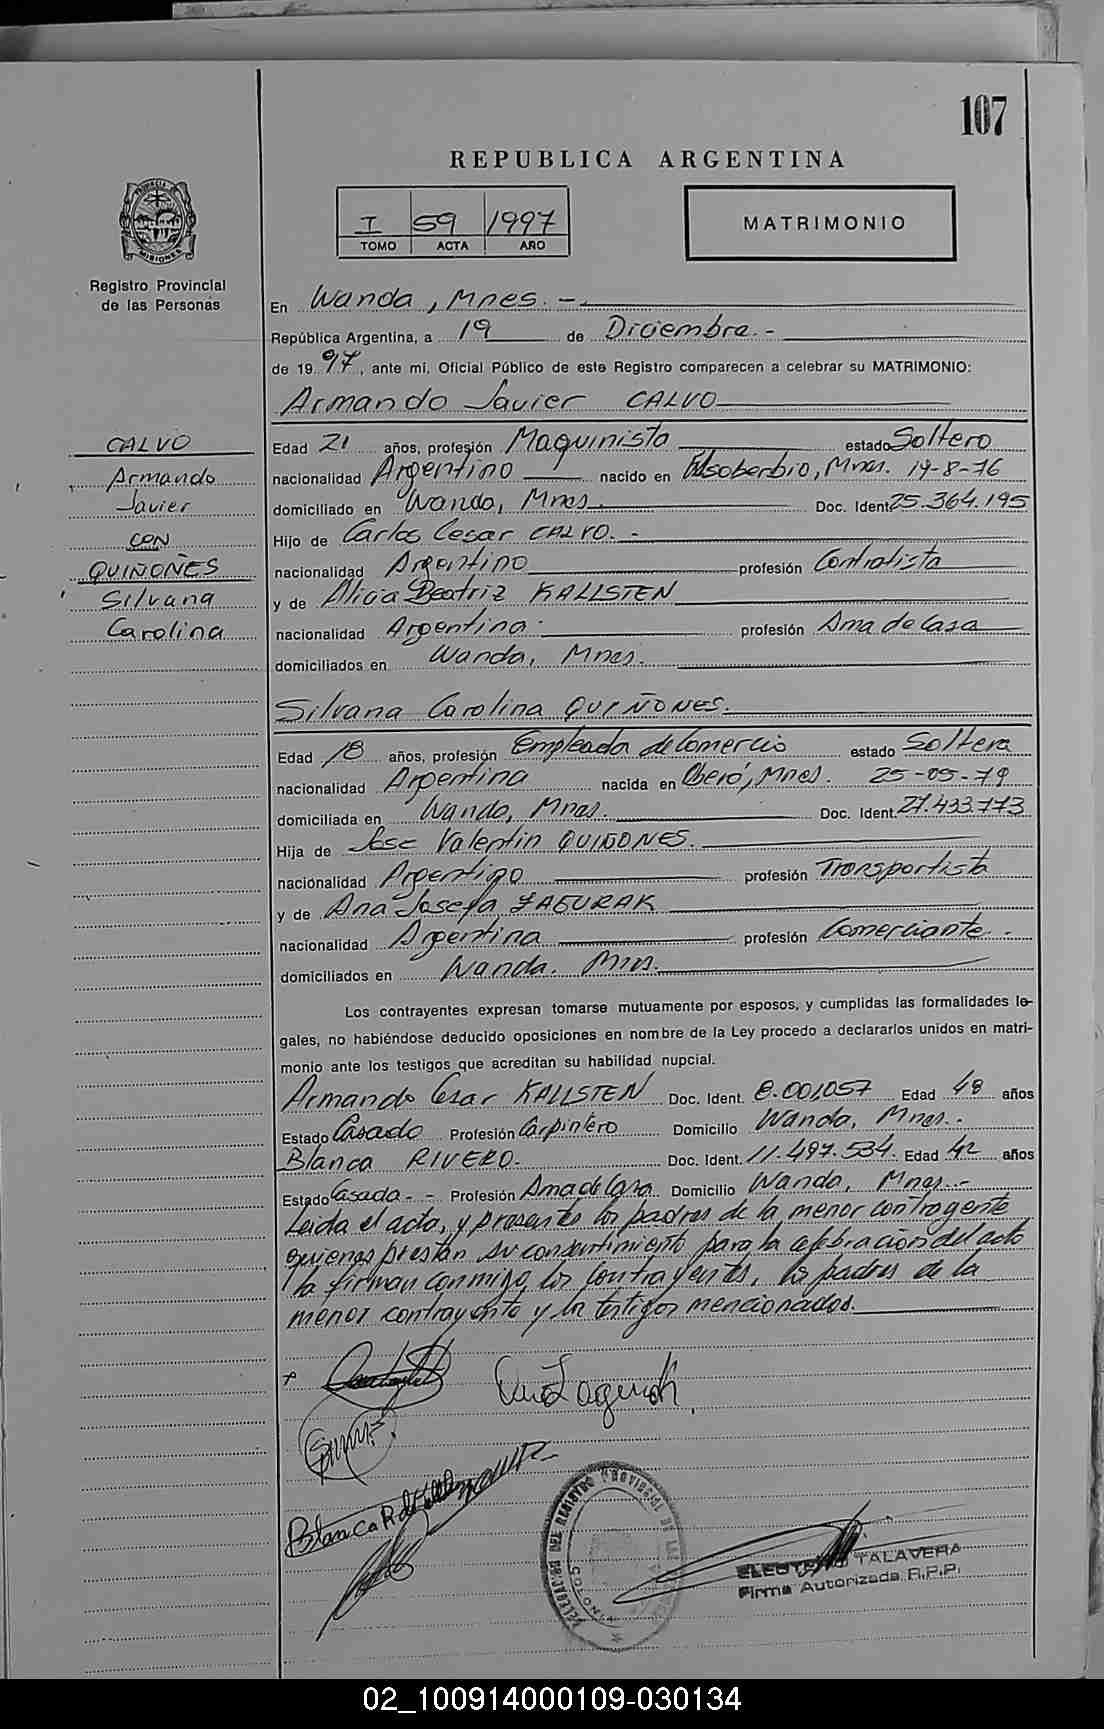 107
REPUBLICA ARGENTINA
I 59 1997
TOMO ACTA AÑO
MATRIMONIO
PROVINCIA DE
MISIONES
Registro Provincial
de las Personas
En Wanda, Mnes. -.
República Argentina, a 19 de Diciembre.-
de 1997, ante mi, Oficial Público de este Registro comparecen a celebrar su MATRIMONIO:
Armando Javier CALVO
CALVO
Armando
Javier
CON
QUIÑOÑES
Silvana
Carolina
Edad 21 años, profesión Maquinista estado Soltero
nacionalidad Argentino nacido en Elsoberbio, Mnes. 19-8-76
domiciliado en Wanda, Mnes. Doc. Ident. 25.364.195
Hijo de Carlos Cesar CALVO.-
nacionalidad Argentino profesión Contratista
y de Alicia Beatriz KALLSTEN
nacionalidad Argentina. profesión Ama de Casa
domiciliados en Wanda, Mnes.
Silvana Carolina QUIÑONES.
Edad 18 años, profesión Empleada de Comercio estado Soltera
nacionalidad Argentina nacida en Oberá, Mnes. 25-05-79
domiciliada en Wanda, Mnes. Doc. Ident. 27.433.773
Hija de Jose Valentin QUIÑONES.
nacionalidad Argentino profesión Transportista
y de Ana Josefa ZAGURAK
nacionalidad Argentina profesión Comerciante.
domiciliados en Wanda. Mnes.
Los contrayentes expresan tomarse mutuamente por esposos, y cumplidas las formalidades le-
gales, no habiéndose deducido oposiciones en nombre de la Ley procedo a declararlos unidos en matri-
monio ante los testigos que acreditan su habilidad nupcial.
Armando Cesar KALLSTEN Doc. Ident. 8.001,057 Edad 48 años
Estado Casado Profesión Carpintero Domicilio Wanda, Mnes..
Blanca RIVERO. Doc. Ident. 11.497.534. Edad 42 años
Estado Casada-- Profesión Ama de Casa Domicilio Wanda, Mnes.-
Leida el acta, y presentes los padres de la menor contrayente
quienes prestan su consentimiento para la celebración del acto
la firman conmigo, los contrayentes, los padres de la
menor contrayente y los testigos mencionados.
Blanca R de
DEL REGISTRO PROVINCIAL DE LAS
ELEUTERIO TALAVERA
Firma Autorizada R.P.P.
02_100914000109-030134